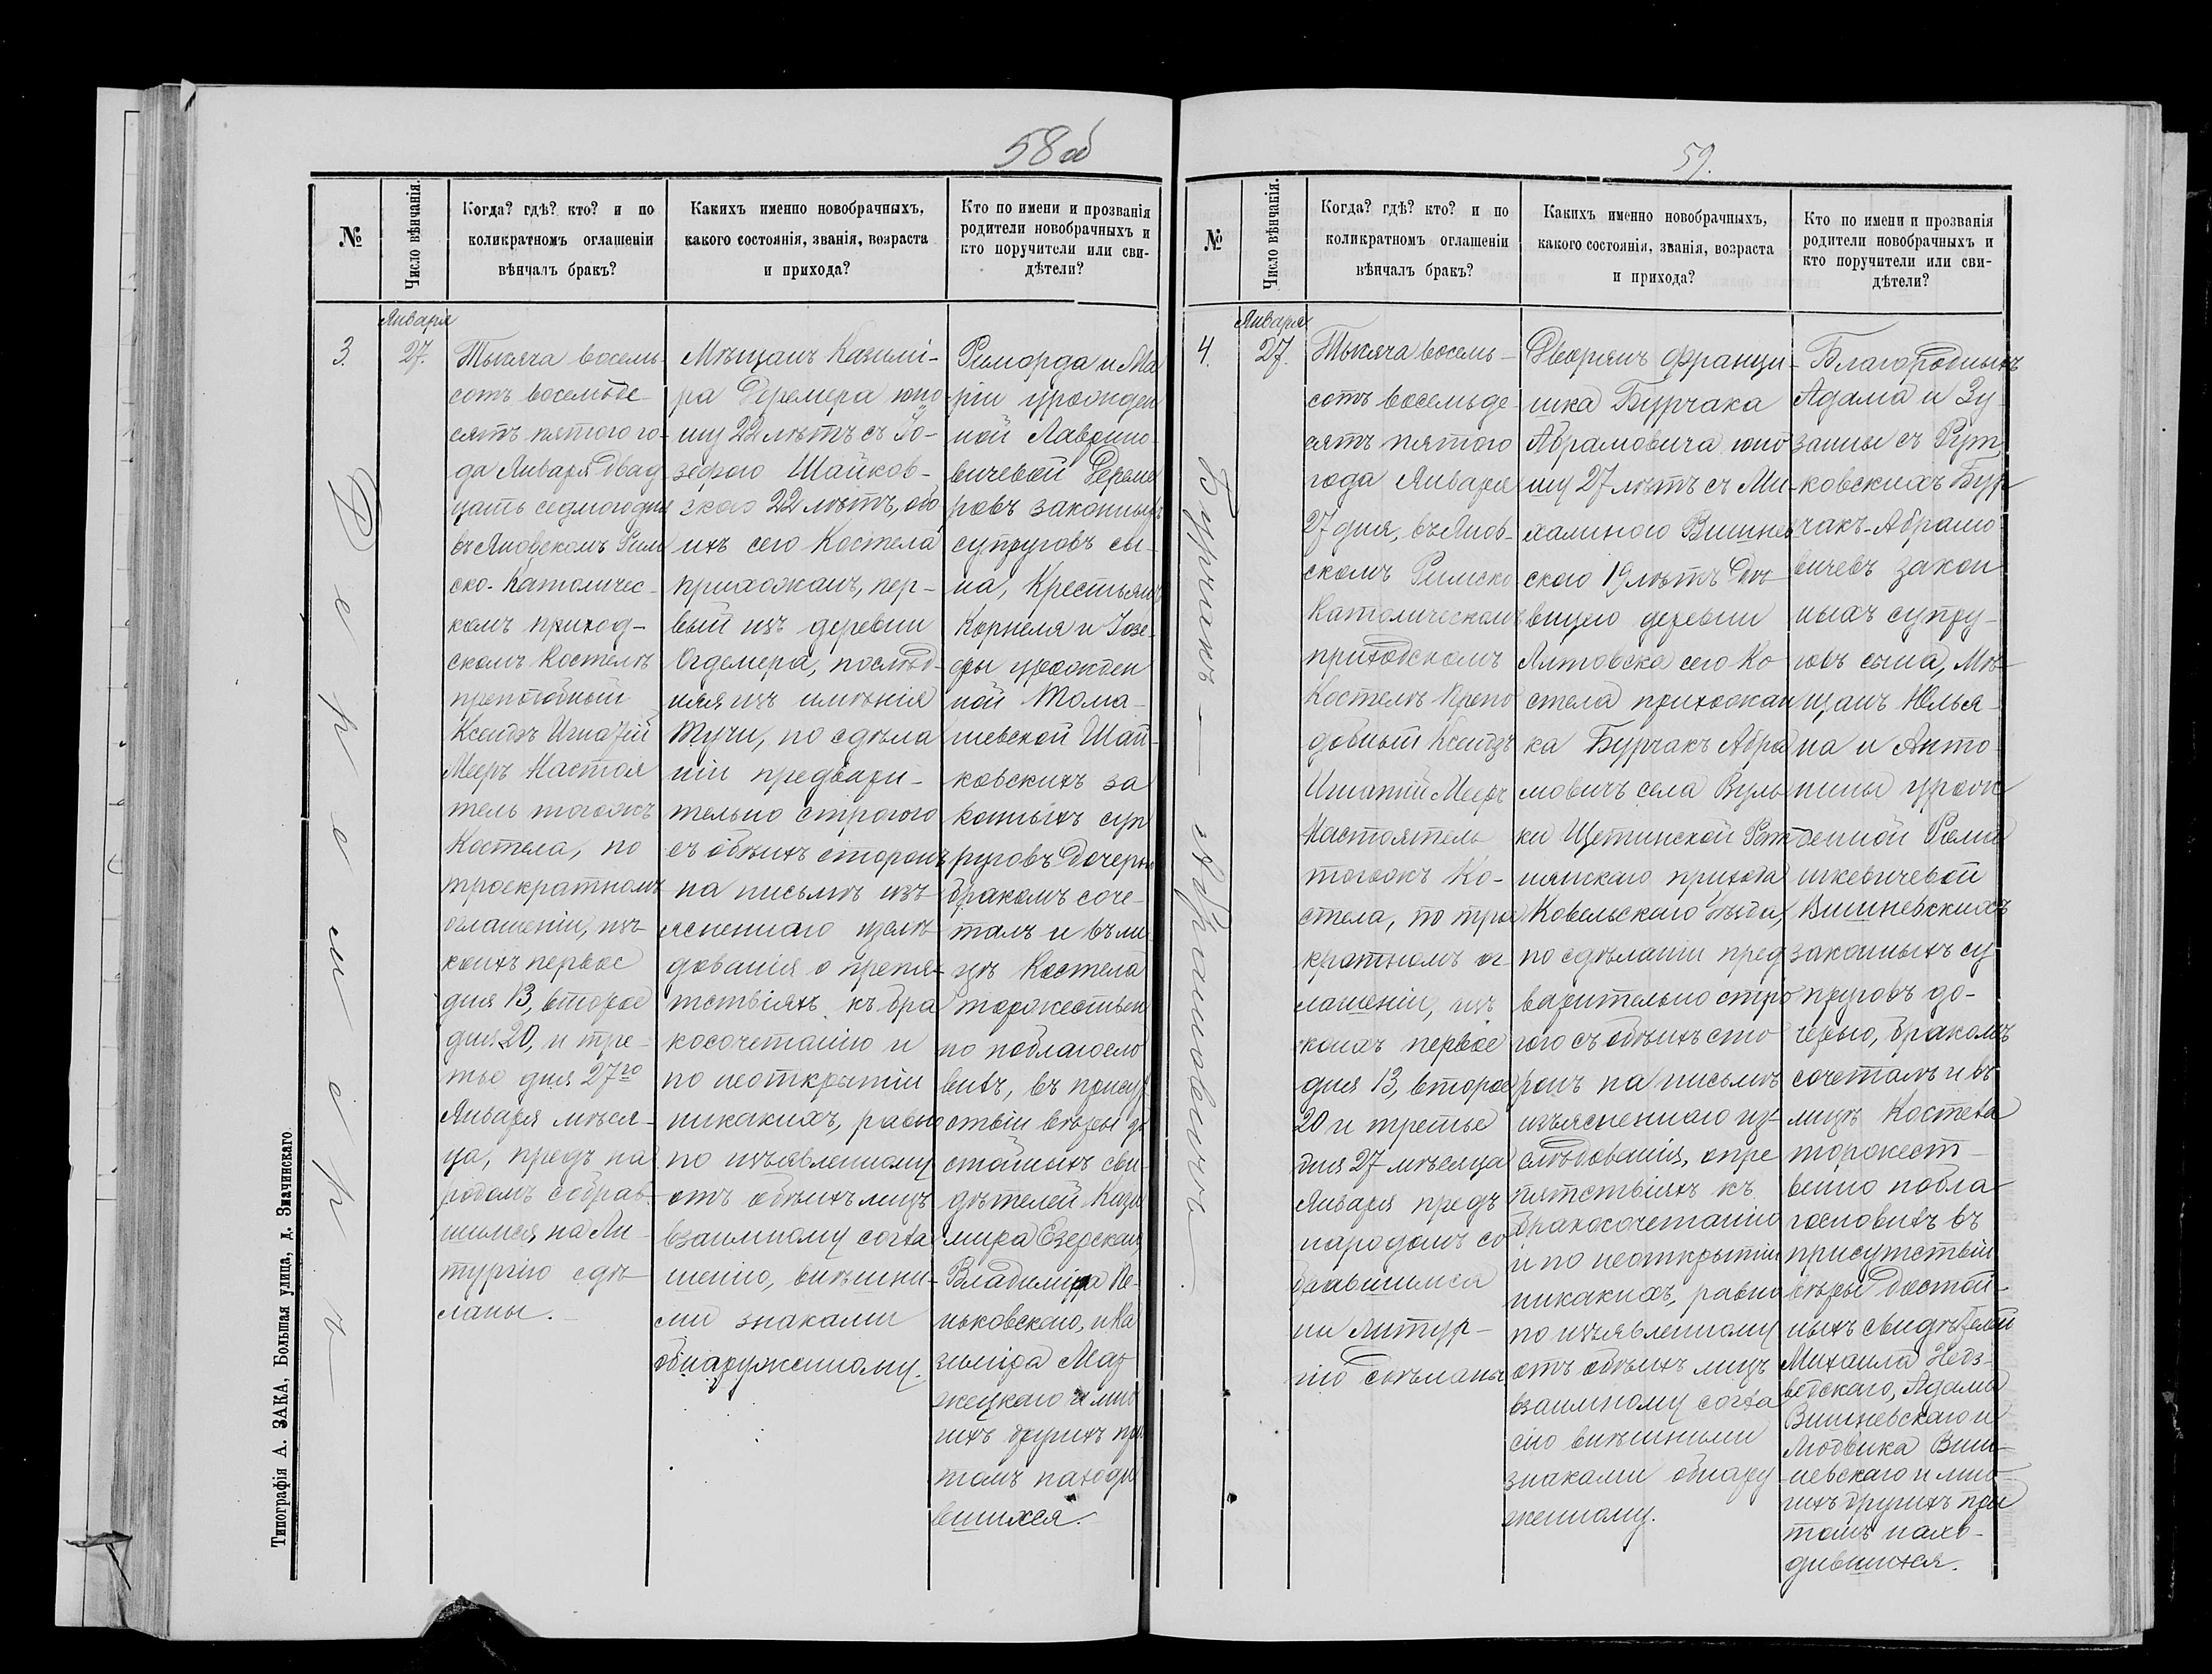 58 об
№
Число вѣнчанія.
Когда? гдѣ? кто? и по
коликратномъ оглашеніи
вѣнчалъ бракъ?
Какихъ именно новобрачныхъ,
какого состоянія, званія, возраста
и прихода?
Кто по имени и прозванія
родители новобрачныхъ и
кто поручители или сви-
дѣтели?
3.
Января
27.
Тысяча восемь
сотъ восемьде
сятъ пятого го-
да Января двад
цать седмого дня
въ Яновскомъ Рим
ско-Католичес-
комъ приход-
скомъ Костелѣ
преподобный
Ксендзъ Игнатій
Мееръ Настоя
тель тогожъ
Костела, по
троекратномъ
оглашеніи, изъ
коихъ первое
дня 13, второе
дня 20, и тре-
тье дня 27го
Января мѣся-
ца, предъ на
родомъ собрав-
шимся на Ли-
тургію сдѣ-
ланы.
Мѣщанъ Казимі-
ра Деремера юно
шу 22 лѣтъ съ Іо-
зефою Шайков-
скою 22 лѣтъ, обо
ихъ сего Костела
прихожанъ, пер-
вый изъ деревни
Огдемера, послѣд-
няя изъ имѣнія
Тучи, по сдѣла
ніи предвари-
тельно строгого
съ обѣихъ сторонъ
на письмѣ изъ
ясненнаго изслѣ
дованія о препя-
тствіяхъ къ бра
косочетанію и
по неоткрытіи
никакихъ, равно
по изъявленному
отъ обѣихъ лицъ
взаимному согла
шенію, внѣшни-
ми знаками
обнаруженному.
Риморда и Ма
ріи урожден
ной Лаврино
вичевой Дереме
ровъ законныхъ
супруговъ сы-
на, Крестьянъ
Корнеля и Іозе-
фы урожден
ной Тома-
шевской Шай-
ковскихъ за
конныхъ суп
руговъ дочерью
бракомъ соче-
талъ и въ ли
цѣ Костела
торжествен
но поблагосло
вилъ, въ присут
ствіи вѣры до
стойныхъ сви-
дѣтелей Кази
мира Езерскаго,
Владиміра Пе-
ньковскаго, и Ка
зиміра Маз-
жецкаго и мно
гихъ другихъ при
томъ находи
вшихся.
Деремеръ
Типографія А. ЗАКА, Большая улица, д. Значинскаго
59.
№
Число вѣнчанія.
Когда? гдѣ? кто? и по
коликратномъ оглашеніи
вѣнчалъ бракъ?
Какихъ именно новобрачныхъ,
какого состоянія, званія, возраста
и прихода?
Кто по имени и прозванія
родители новобрачныхъ и
кто поручители или сви-
дѣтели?
4.
Января
27.
Тысяча восемь-
сотъ восемьде-
сятъ пятого
года Января
27 дня, въ Янов-
скомъ Римско
Католическомъ
приходскомъ
Костелѣ Препо
добный Ксендзъ
Игнатій Мееръ
Настоятель
тогожъ Ко-
стела, по трое
кратномъ ог-
лашеніи, изъ
коихъ первое
дня 13, второе
20 и третье
дня 27 мѣсяца
Января предъ
народомъ со
бравшимся
на Литур-
гію сдѣланы
Дворянъ Франци-
шка Бурчака
Абрамовича юно
шу 27 лѣтъ съ Ми-
халиною Вишнев
скою 19 лѣтъ дѣ-
вицею деревни
Лятовска сего Ко
стела прихожан
ка Бурчакъ Абра
мовичъ села Вуль
ки Щетинской Рат
нянскаго прихода
Ковельскаго уѣзда,
по сдѣланіи пред
варительно стро
гого съ обѣихъ сто
ронъ на письмѣ
изъясненнаго из-
слѣдованія, о пре
пятствіяхъ къ
бракосочетанію
и по неоткрытіи
никакихъ, равно
по изъявленному
отъ обѣихъ лицъ
взаимному согла
сію внѣшними
знаками обнару
женному.
Благородныхъ
Адама и Зу-
занны съ Рут
ковскихъ Бур
чакъ-Абрамо
вичевъ закон
ныхъ супру-
говъ сына, Мѣ-
щанъ Юлья-
на и Анто-
нины урож
денной Рома
шкевичевой
Вишневскихъ
законныхъ су
пруговъ до-
черью, бракомъ
сочеталъ и въ
лицѣ Костела
торжест-
венно побла
гословилъ въ
присутствіи
вѣры достой-
ныхъ свидѣтелей
Михаила Недз-
вецкаго, Адама
Вишневскаго и
Людвика Виш-
невскаго и мно-
гихъ другихъ при
томъ нахо-
дившихся.
Бурчакъ - Абрамовичъ.